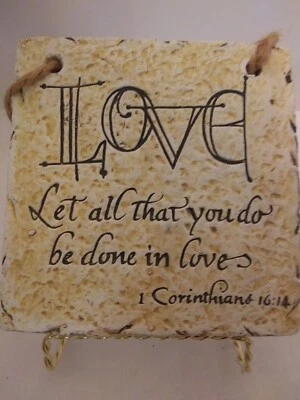 LOVE
Let all that you do
be done in love
1 Corinthians 16:14